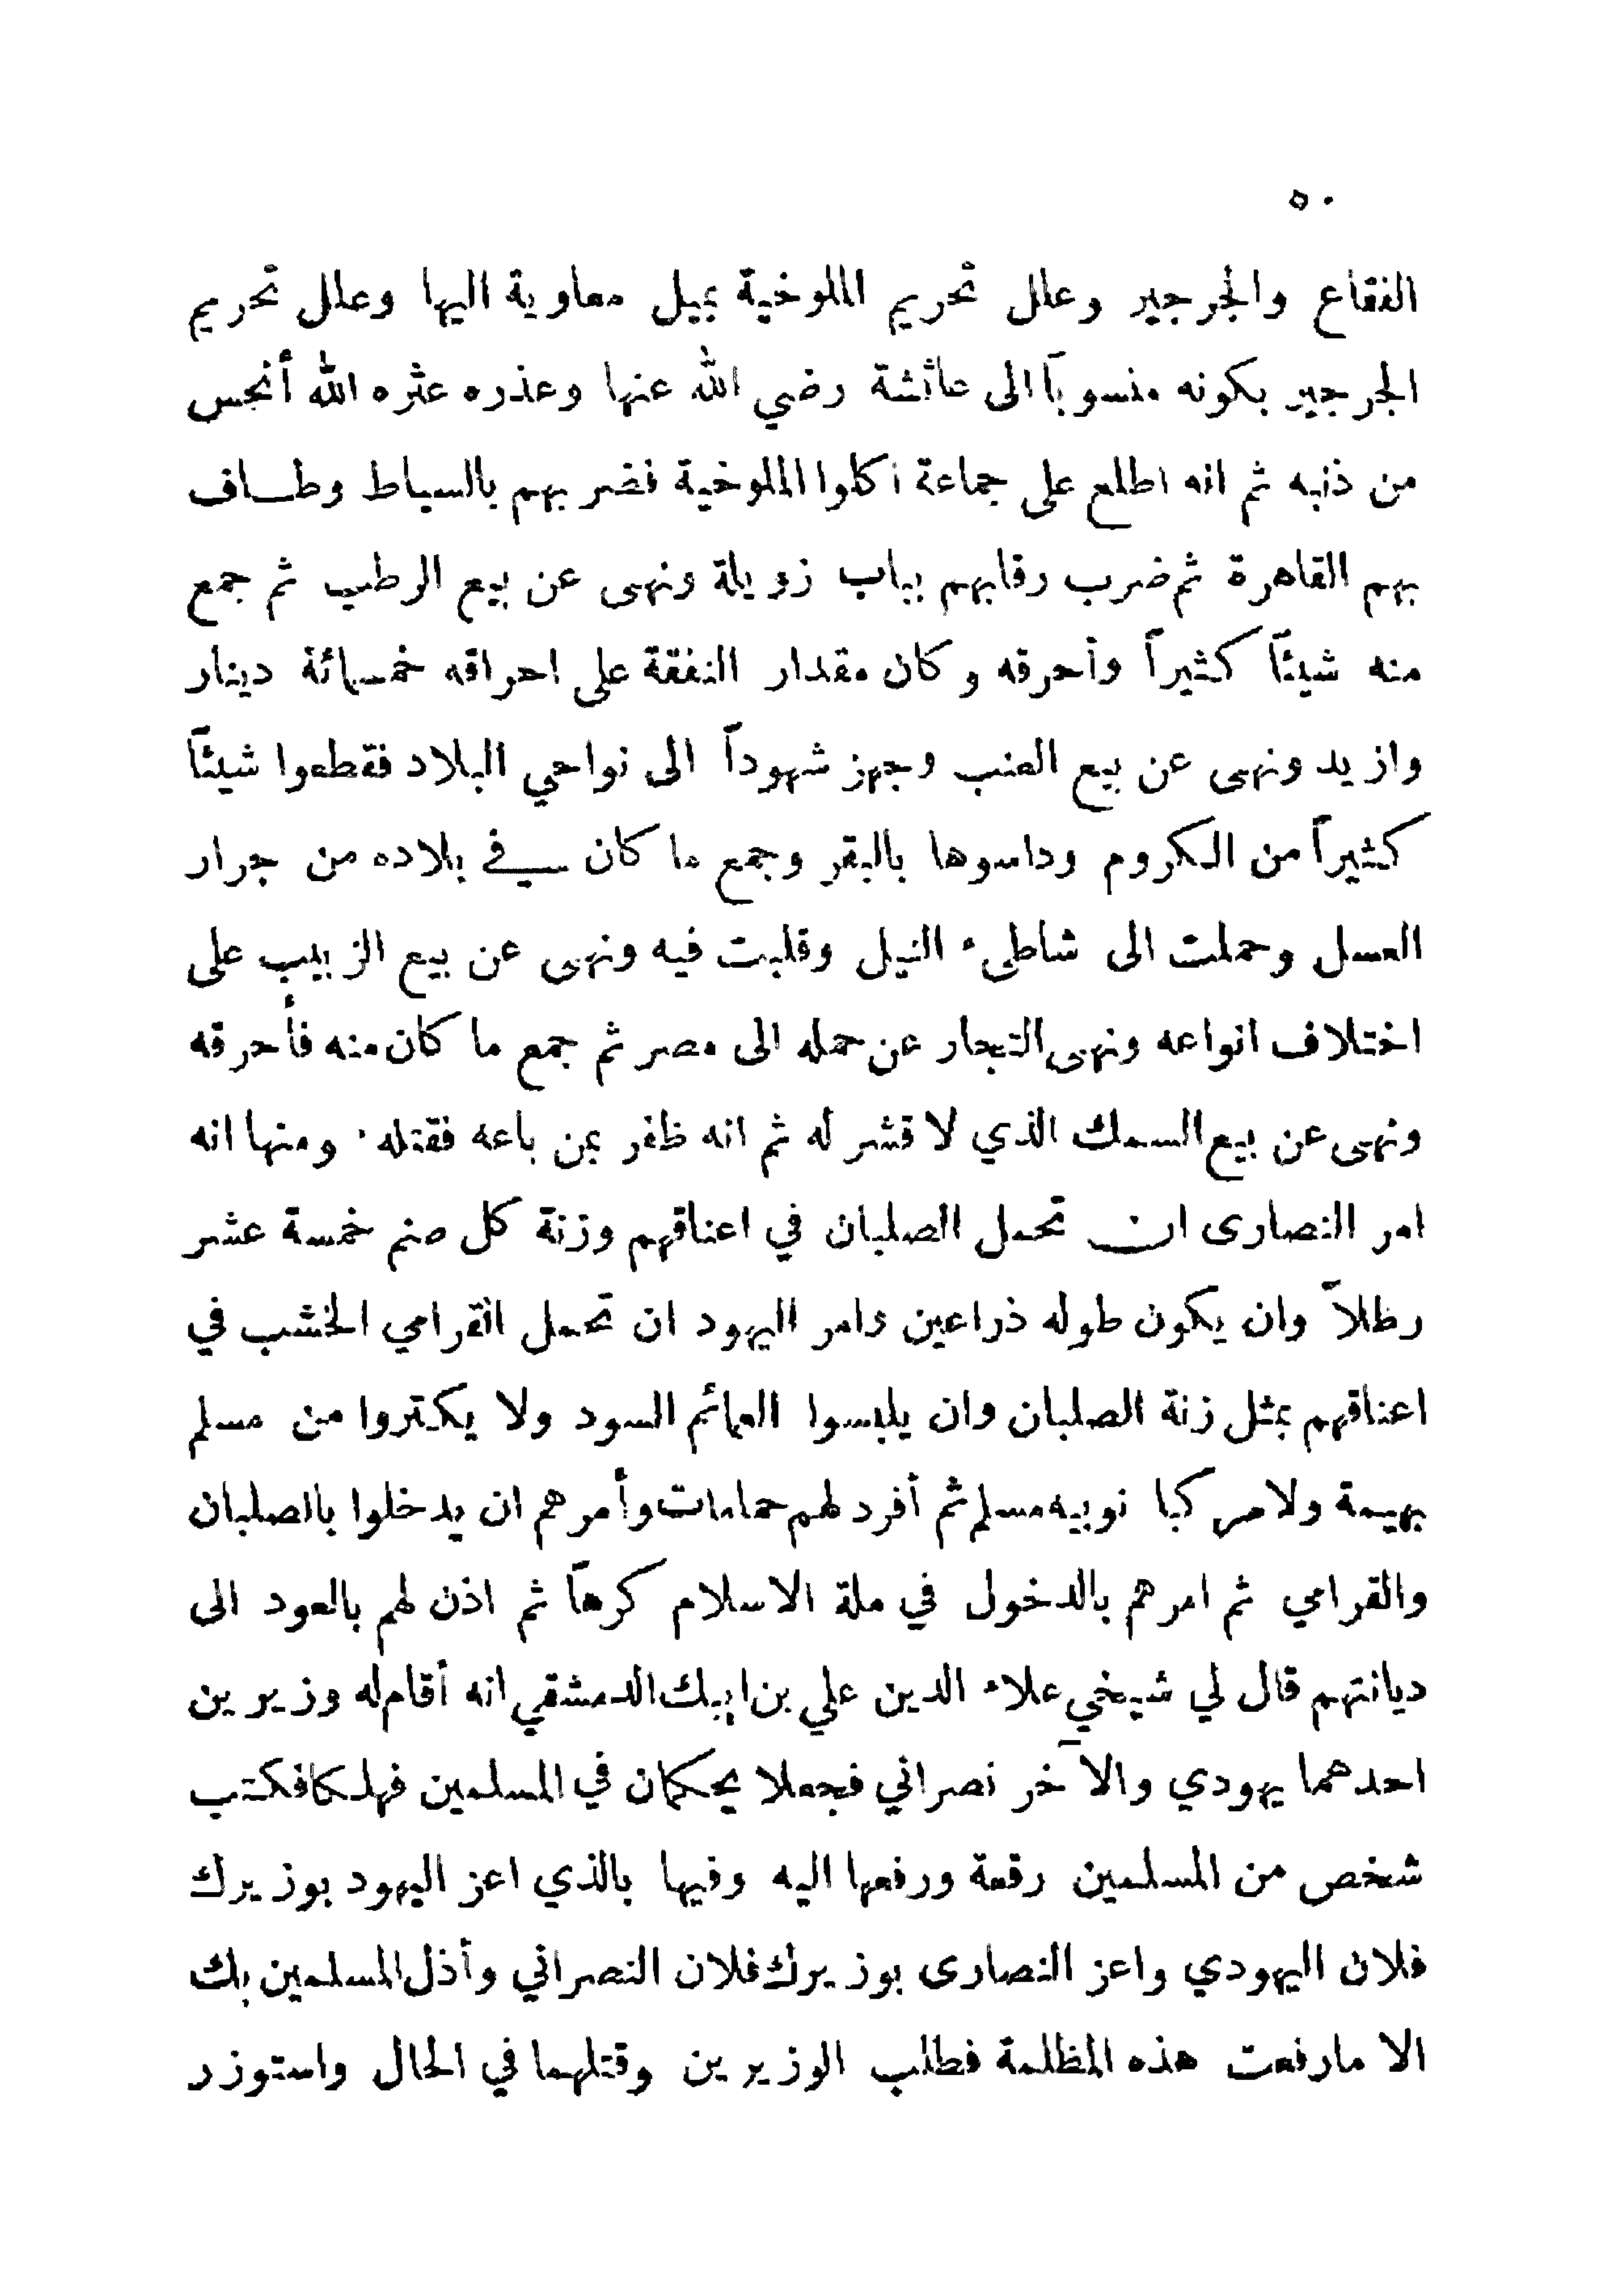 ٥٠
الفقاع والجرجير وعلل تحريم الملوخية بميل معاوية اليها وعلل تحريم
الجرجير بكونه منسوباً الى عائشة رضي الله عنها وعذره عثره الله أنجس
من ذنبه ثم انه اطلع على جماعة اكلوا الملوخية فضر بهم بالسياط وطـاف
بهم القاهرة ثم ضرب رقابهم بباب زويلة ونهى عن بيع الرطب ثم جمع
منه شيئاً كثيراً وأحرقه وكان مقدار النفقة على احراقه خمسمائة دينار
وازيد ونهى عن بيع العنب وجهز شهوداً الى نواحي البلاد فقطعوا شيئاً
كثيراً من الكروم وداسوها بالبقر وجمع ما كان في بلاده من جرار
العسل وحملت الى شاطىء النيل وقلبت فيه ونهى عن بيع الزبيب على
اختلاف انواعه ونهى التجار عن حمله الى مصر ثم جمع ما كان منه فأحرقه
ونهى عن بيع السمك الذي لا قشر له ثم انه ظفر بمن باعه فقتله ٠ ومنها انه
امر النصارى ان تحمل الصلبان في اعناقهم وزنة كل صنم خمسة عشر
رطلاً وان يكون طوله ذراعين وامر اليهود ان تحمل القرامي الخشب في
اعناقهم بمثل زنة الصلبان وان يلبسوا العمائم السود ولا يكتروا من مسلم
بهيمة ولا مركبا نوبيه مسلم ثم أفرد لهم حمامات وأمرهم ان يدخلوا بالصلبان
والقرامي ثم امرهم بالدخول في ملة الاسلام كرهاً ثم اذن لهم بالعود الى
ديانتهم قال لي شيخي علاء الدين علي بن ايبك الدمشقي انه أقام له وزيرين
احدهما يهودي والآخر نصراني فجعلا يحكمان في المسلمين فهلكا فكتب
شخص من المسلمين رقعة ورفعها اليه وفيها بالذي اعز اليهود بوزيرك
فلان اليهودي واعز النصارى بوزيرك فلان النصراني وأذل المسلمين بك
الا مارفعت هذه المظلمة فطلب الوزيرين وقتلهما في الحال واستوزد